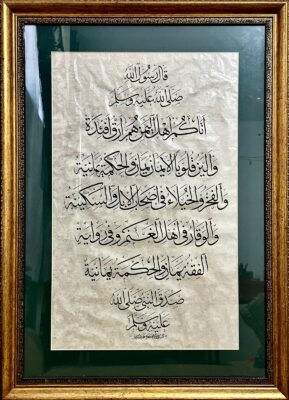 قال رسول الله
صلى الله عليه وسلم
أتاكم أهل اليمن هم أرق أفئدة
وألين قلوبا الإيمان يمان والحكمة يمانية
والفخر والخيلاء في أصحاب الإبل والسكينة
والوقار في أهل الغنم وفي رواية
الفقه يمان والحكمة يمانية
صدق النبي صلى الله
عليه وسلم